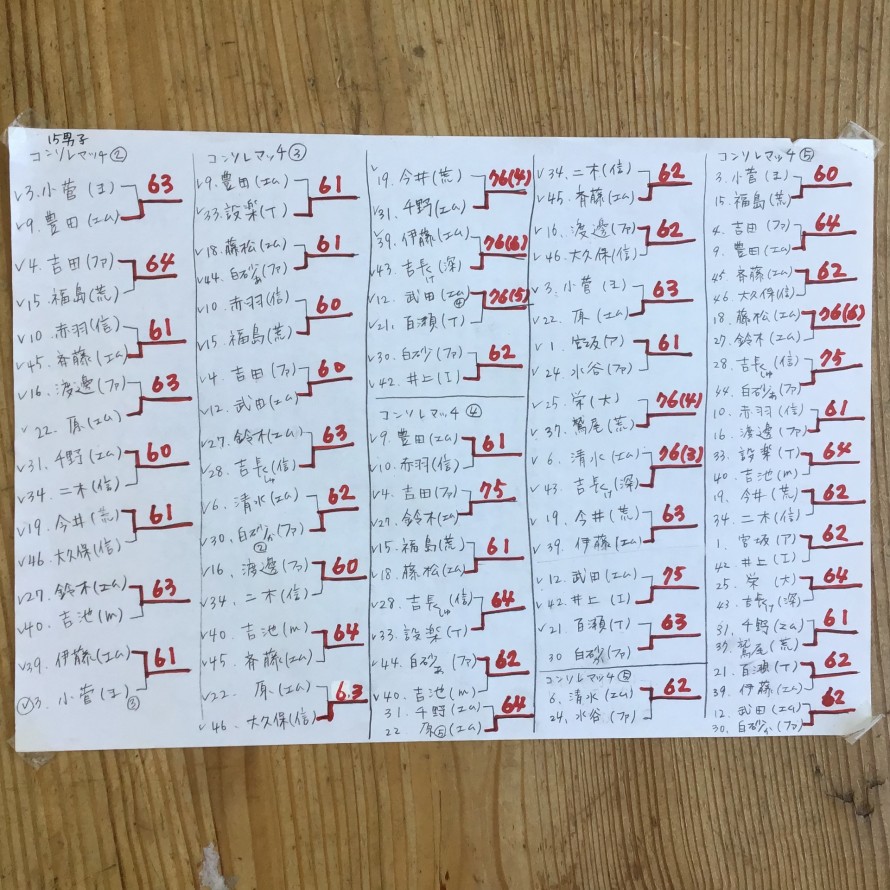 15男子
コンソレマッチ②
v3.小菅(ヨ) 63
v9.豊田(エム)
v4.吉田(ファ) 64
v15.福島(荒)
v10.赤羽(信) 61
v45.斉藤(エム)
v16.渡邊(ファ) 63
v22.原(エム)
v31.千野(エム) 60
v34.二木(信)
v19.今井(荒) 61
v46.大久保(信)
v27.鈴木(エム) 63
v40.吉池(m)
v39.伊藤(エム) 61
v3.小菅(ヨ)
コンソレマッチ③
v9.豊田(エム) 61
v33.設楽(T)
v18.藤松(エム) 61
v44.白砂あ(ファ)
v10.赤羽(信) 60
v15.福島(荒)
v4.吉田(ファ) 60
v12.武田(エム)
v27.鈴木(エム) 63
v28.吉長しゅ(信)
v6.清水(エム) 62
v30.白砂(ファ)
②
v16.渡邊(ファ) 60
v34.二木(信)
v40.吉池(m) 64
v45.斉藤(エム)
v22.原(エム) 6.3
v46.大久保(信)
v19.今井(荒) 76(4)
v31.千野(エム)
v39.伊藤(エム) 76(6)
v43.吉長け(深)
v12.武田(エム) 76(5)
④
v21.百瀬(T)
v30.白砂(ファ) 62
v42.井上(I)
コンソレマッチ④
v9.豊田(エム) 61
v10.赤羽(信)
v4.吉田(ファ) 75
v27.鈴木(エム)
v15.福島(荒) 61
v18.藤松(エム)
v28.吉長しゅ(信) 64
v33.設楽(T)
v44.白砂あ(ファ) 62
v40.吉池(m)
31.千野(エム) 64
22 原⑤(エム)
v34.二木(信) 62
v45.斉藤(エム)
v16.渡邊(ファ) 62
v46.大久保(信)
v3.小菅(ヨ) 63
v22.原(エム)
v1.宮坂(ア) 61
v24.水谷(ファ)
v25.栄(大) 76(4)
v37.鷲尾(荒)
v6.清水(エム) 76(3)
v43.吉長け(深)
v19.今井(荒) 63
v39.伊藤(エム)
v12.武田(エム) 75
v42.井上(I)
v21.百瀬(T) 63
30 白砂(ファ)
コンソレマッチ⑤
6.清水(エム) 62
24.水谷(ファ)
コンソレマッチ⑤
3.小菅(ヨ) 60
15.福島(荒)
4.吉田(ファ) 64
9.豊田(エム)
45.斉藤(エム) 62
46 大久保(信)
18.藤松(エム) 76(6)
27.鈴木(エム)
28.吉長しゅ(信) 75
44.白砂あ(ファ)
10.赤羽(信) 61
16.渡邊(ファ)
33.設楽(T) 64
40.吉池(m)
19.今井(荒) 62
34.二木(信)
1.宮坂(ア) 62
42.井上(I)
25.栄(大) 64
43.吉長け(深)
31.千野(エム) 61
37.鷲尾(荒)
21.百瀬(T) 62
39.伊藤(エム)
12.武田(エム) 62
30.白砂(ファ)